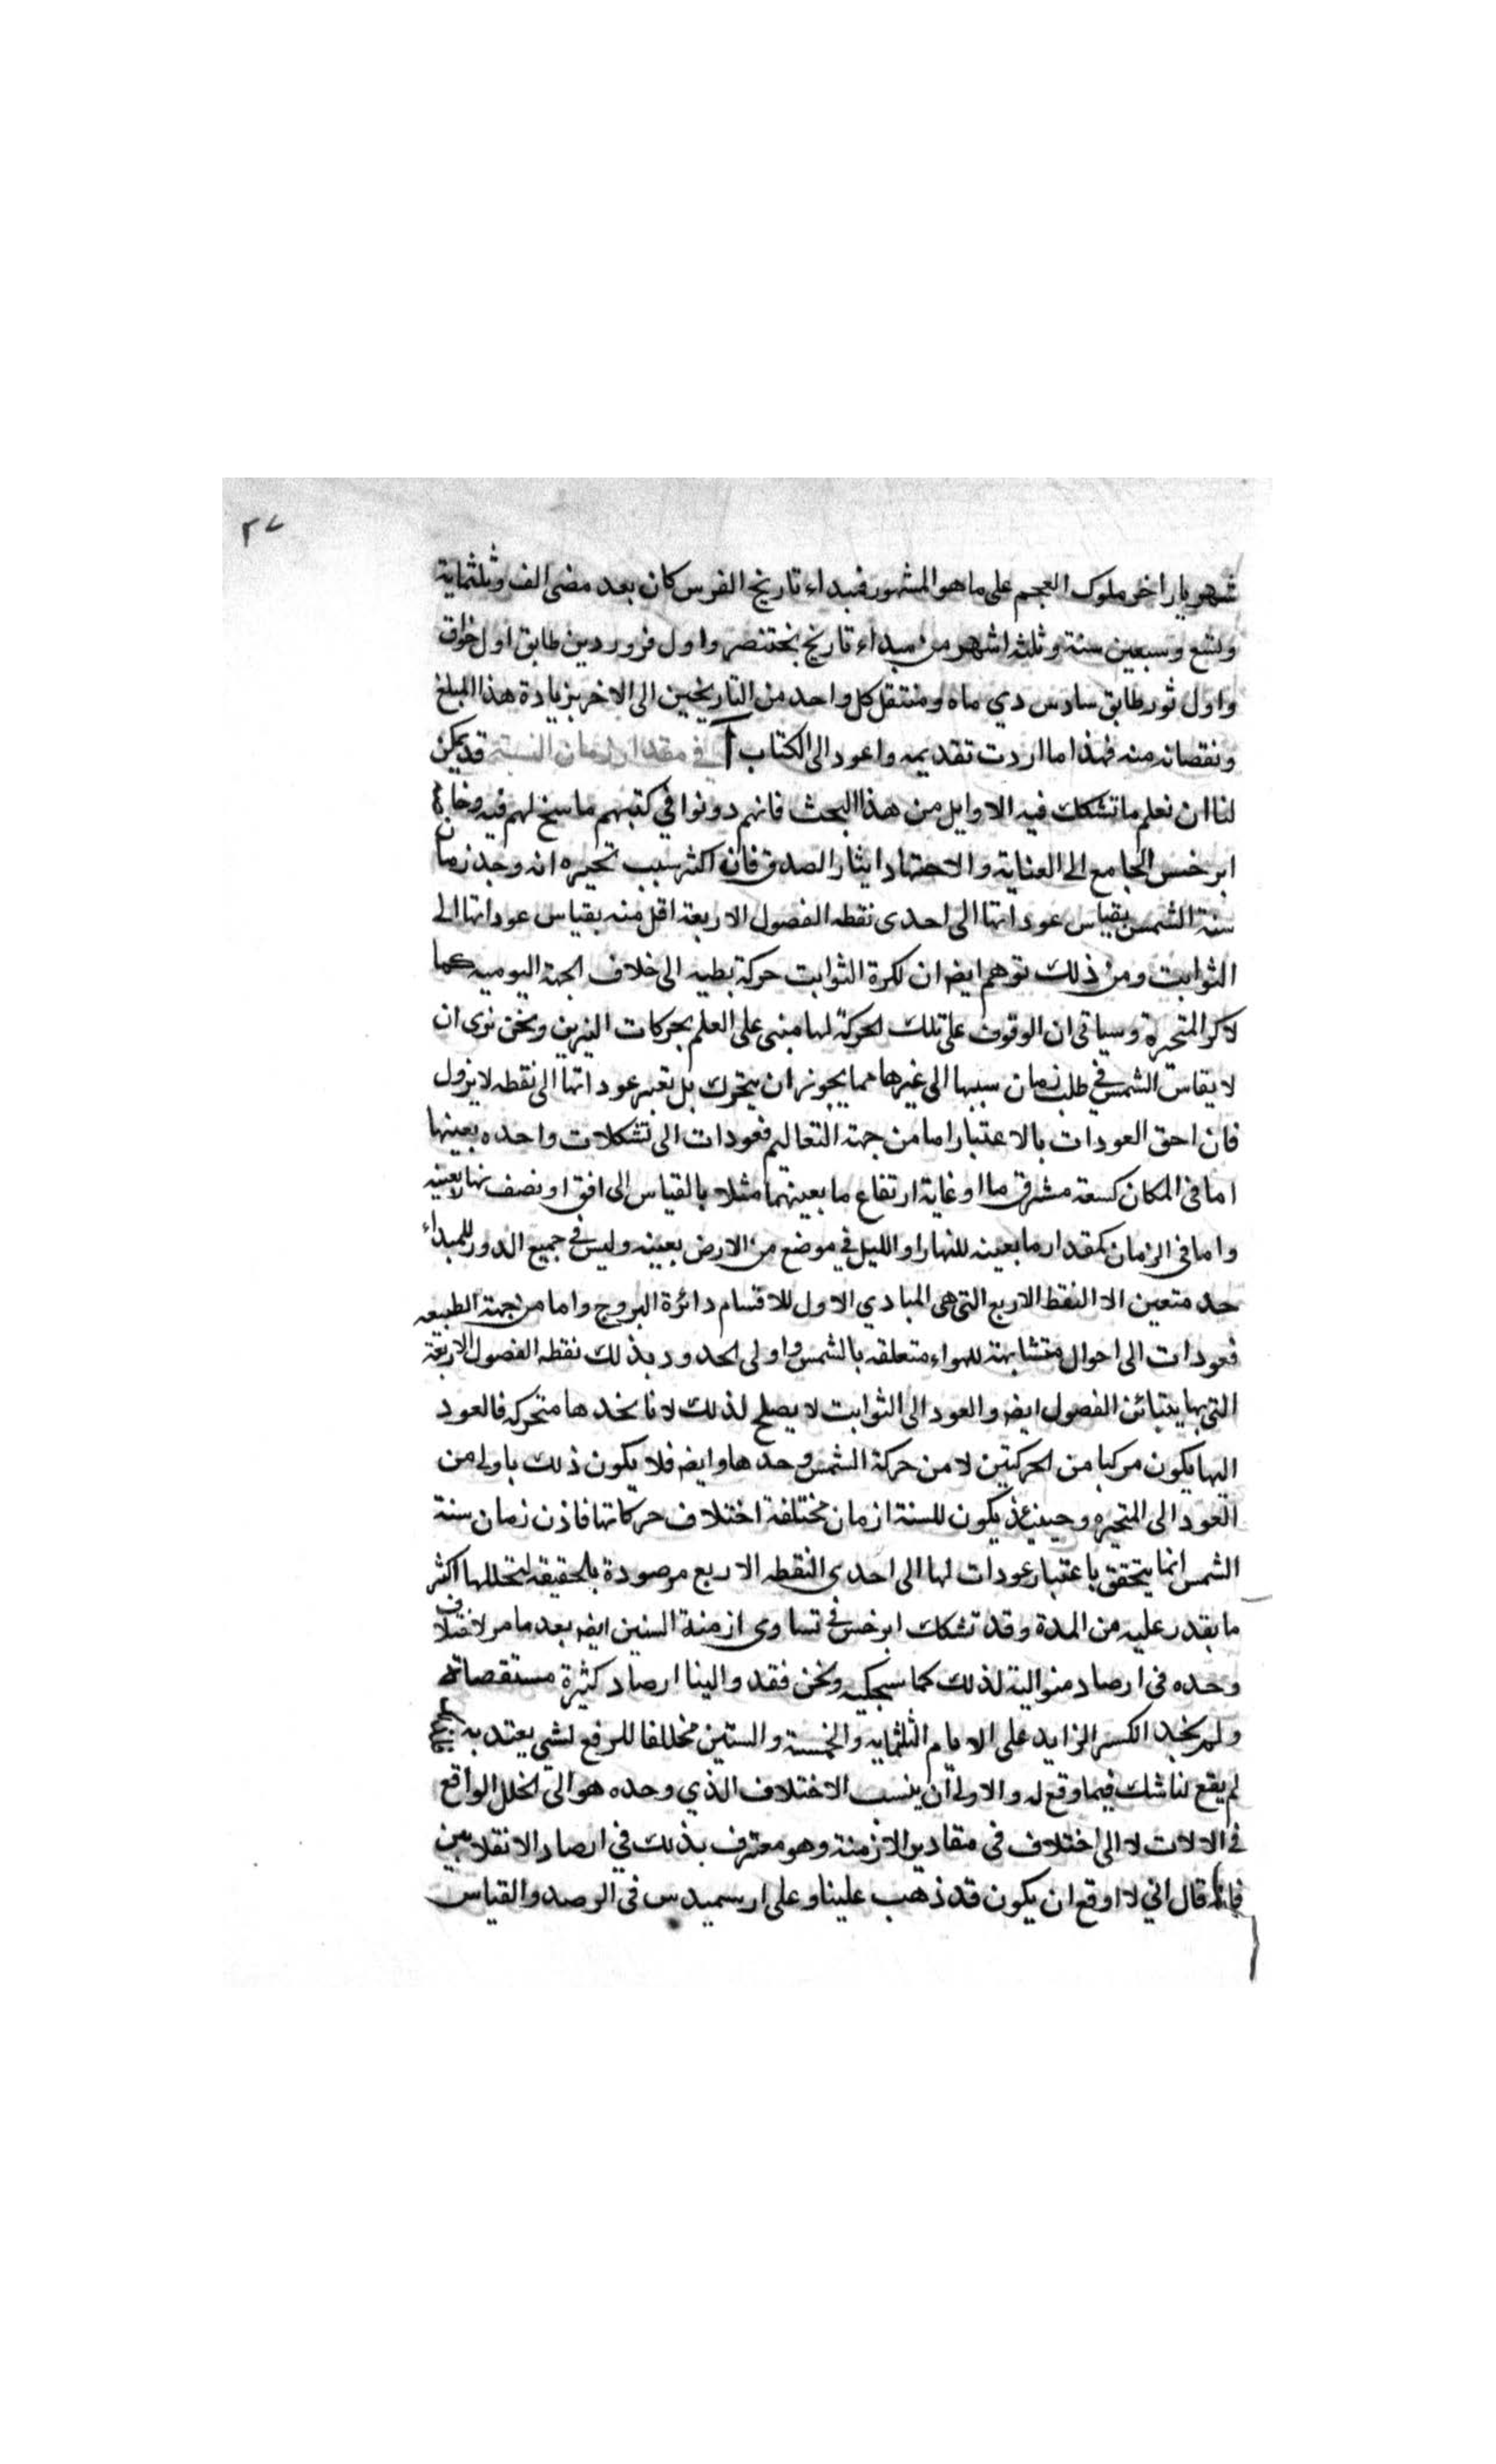 ٢٧
شهريار اخر ملوك العجم على ما هو المشهور فمبداء تاريخ الفرس كان بعد مضى الف وثلثماية
وتسع وسبعين سنة وثلثة اشهر من مبداء تاريخ بختنصر واول فروردين طابق اول
واول ثور طابق سادس دي ماه ومنتقل كل واحد من التاريخين الى الاخر بزيادة هذا المبلغ
ونقصانه منه فهذا ما اردت تقديمه واعود الى الكتاب آ في مقدار زمان السنة قد يمكن
لنا ان نعلم ما تشكك فيه الاوايل من هذا البحث فانهم دونوا في كتبهم ما سنح لهم فيه وخاصة
ابرخس الجامع الى العناية والاجتهاد ايثار الصدق فان اكثر سبب تحيره انه وجد زمان
سنة الشمس بقياس عوداتها الى احدى نقطه الفصول الاربعة اقل منه بقياس عوداتها الى
الثوابت ومن ذلك توهم ايضا ان لكرة الثوابت حركة بطيه الى خلاف الجهة اليوميه كما
لاكر المتحيرة وسياتى ان الوقوف على تلك الحركة لها مبنى على العلم بحركات النيرين ونحن نرى ان
لا يقاس الشمس في طلب زمان سببها الى غيرها مما يجوز ان يتحرك بل تعبر عوداتها الى نقطه لا يزول
فان احق العودات بالاعتبار اما من جهة التعاليم فعودات الى تشكلات واحده بعينها
اما فى المكان كسعة مشرق ما او غاية ارتفاع ما بعينهما مثلا بالقياس الى افق او نصف نهار بعينه
واما فى الزمان كمقدار ما بعينه للنهار او الليل في موضع من الارض بعينه وليس في جميع الدور للمبداء
حد متعين الا النقط الاربع التى هى المبادي الاول للاقسام دائرة البروج واما من جهة الطبيعه
فعودات الى احوال متشابهة للهواء متعلقه بالشمس واولى الحدود بذلك نقطه الفصول الاربعة
التى بها يتبائن الفصول ايضا والعود الى الثوابت لا يصلح لذلك لانا نجدها متحركه فالعود
اليها يكون مركبا من الحركتين لا من حركة الشمس وحدها وايضا فلا يكون ذلك باولى من
العود الى المتحيره وحينئذ يكون للسنة ازمان مختلفة اختلاف حركاتها فاذن زمان سنة
الشمس انما يتحقق باعتبار عودات لها الى احدى النقطه الاربع مرصودة بالحقيقه يتخللها اكثر
ما يقدر عليه من المدة وقد تشكك ابرخس في تساوى ازمنة السنين ايضا بعد ما مر لاختلاف
وحده فى ارصاد متوالية لذلك كما سيحكيه ونحن فقد والينا ارصاد كثيرة مستقصاة
ولم نجد الكسر الزايد على الايام الثلثمايه والخمسة والستين مخالفا للرفع لشى يعتد به
لم يقع لنا شك فيما وقع له والاولى ان ينسب الاختلاف الذي وحده هو الى الخلل الواقع
في الالات لا الى اختلاف فى مقادير الازمنة وهو معترف بذلك في ارصاد الانقلابين
فانه قال اني لا اوقع ان يكون قد ذهب علينا وعلى ارسميدس فى الرصد والقياس